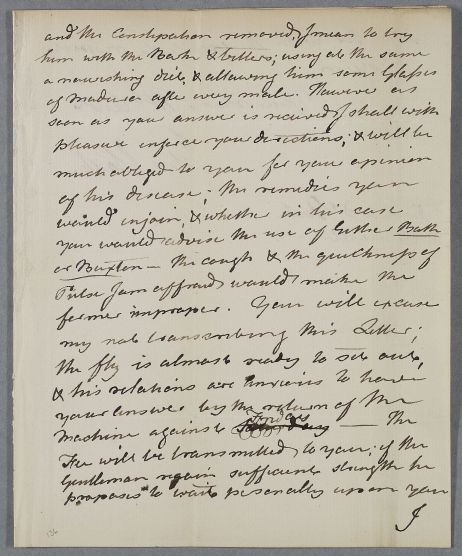 and the Constipation removed, I mean to try
him with the Bark & bitters; using at the same
a nourishing diet, & allowing him some Glasses
of Madeira after every meale. However as
soon as your answer is received I shall with
pleasure inforce your directions; & will be
much obliged to your for your opinion
of his disease; the remedies your
would injoin, & whether in his case
your would advise the use of Either Bath
or Buxton — the cough & the quickness of
Pulse I am affraid would make the
former improper. Your will excuse
my not transcribing this Letter;
the fly is almost ready to set out,
& his relations are anxious to have
your answer by the return of the
Machine against Friday — The
Fee will be transmitted to your; if the
Gentleman regain sufficient strength he
proposes to wait personally upon your
I
136